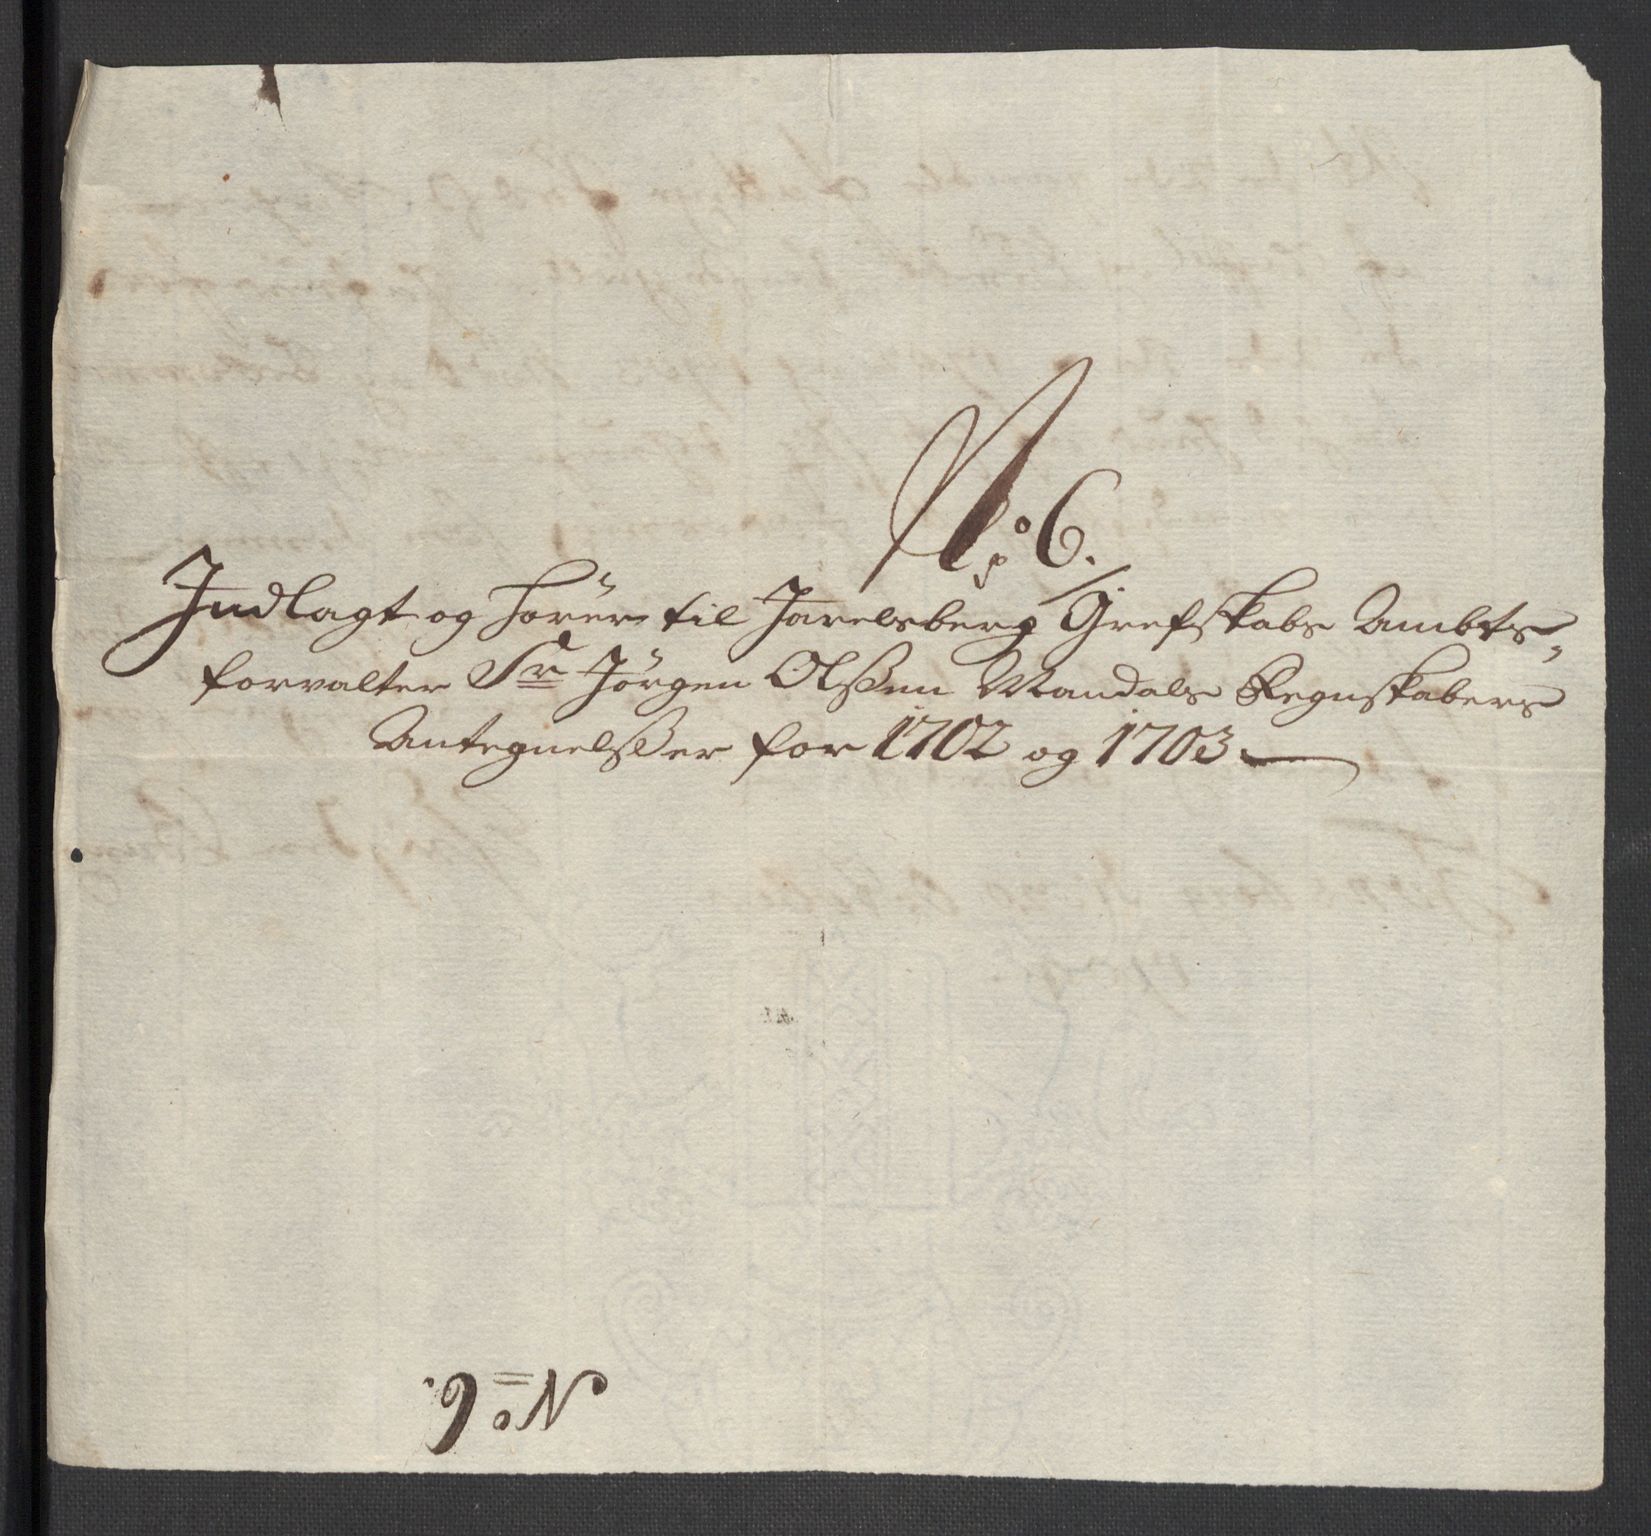 No: 6.
Indlagt og hører til Jarelsberg Grefskabs Ambts-
forvalter Sr Jørgen Olssen Mandals Regnskabers
Antegnelsser for 1702 og 1703
No 6.